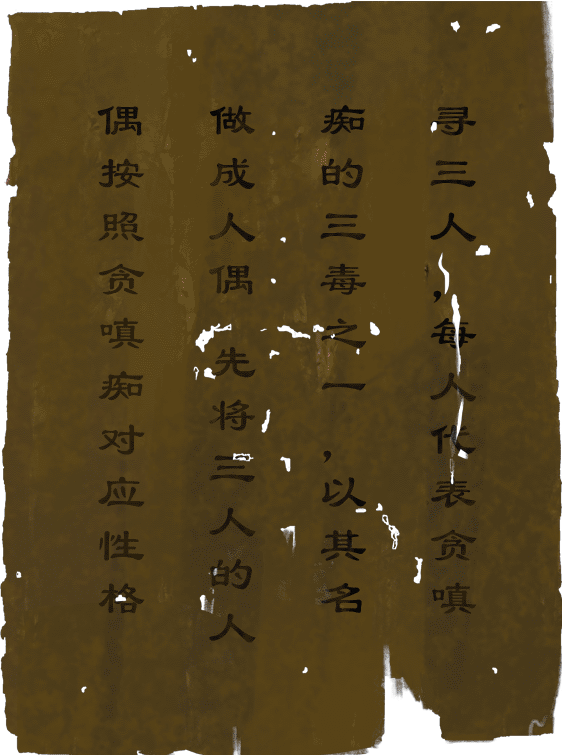 寻三人，每人代表贪嗔
痴的三毒之一，以其名
做成人偶 先将三人的人
偶按照贪嗔痴对应性格